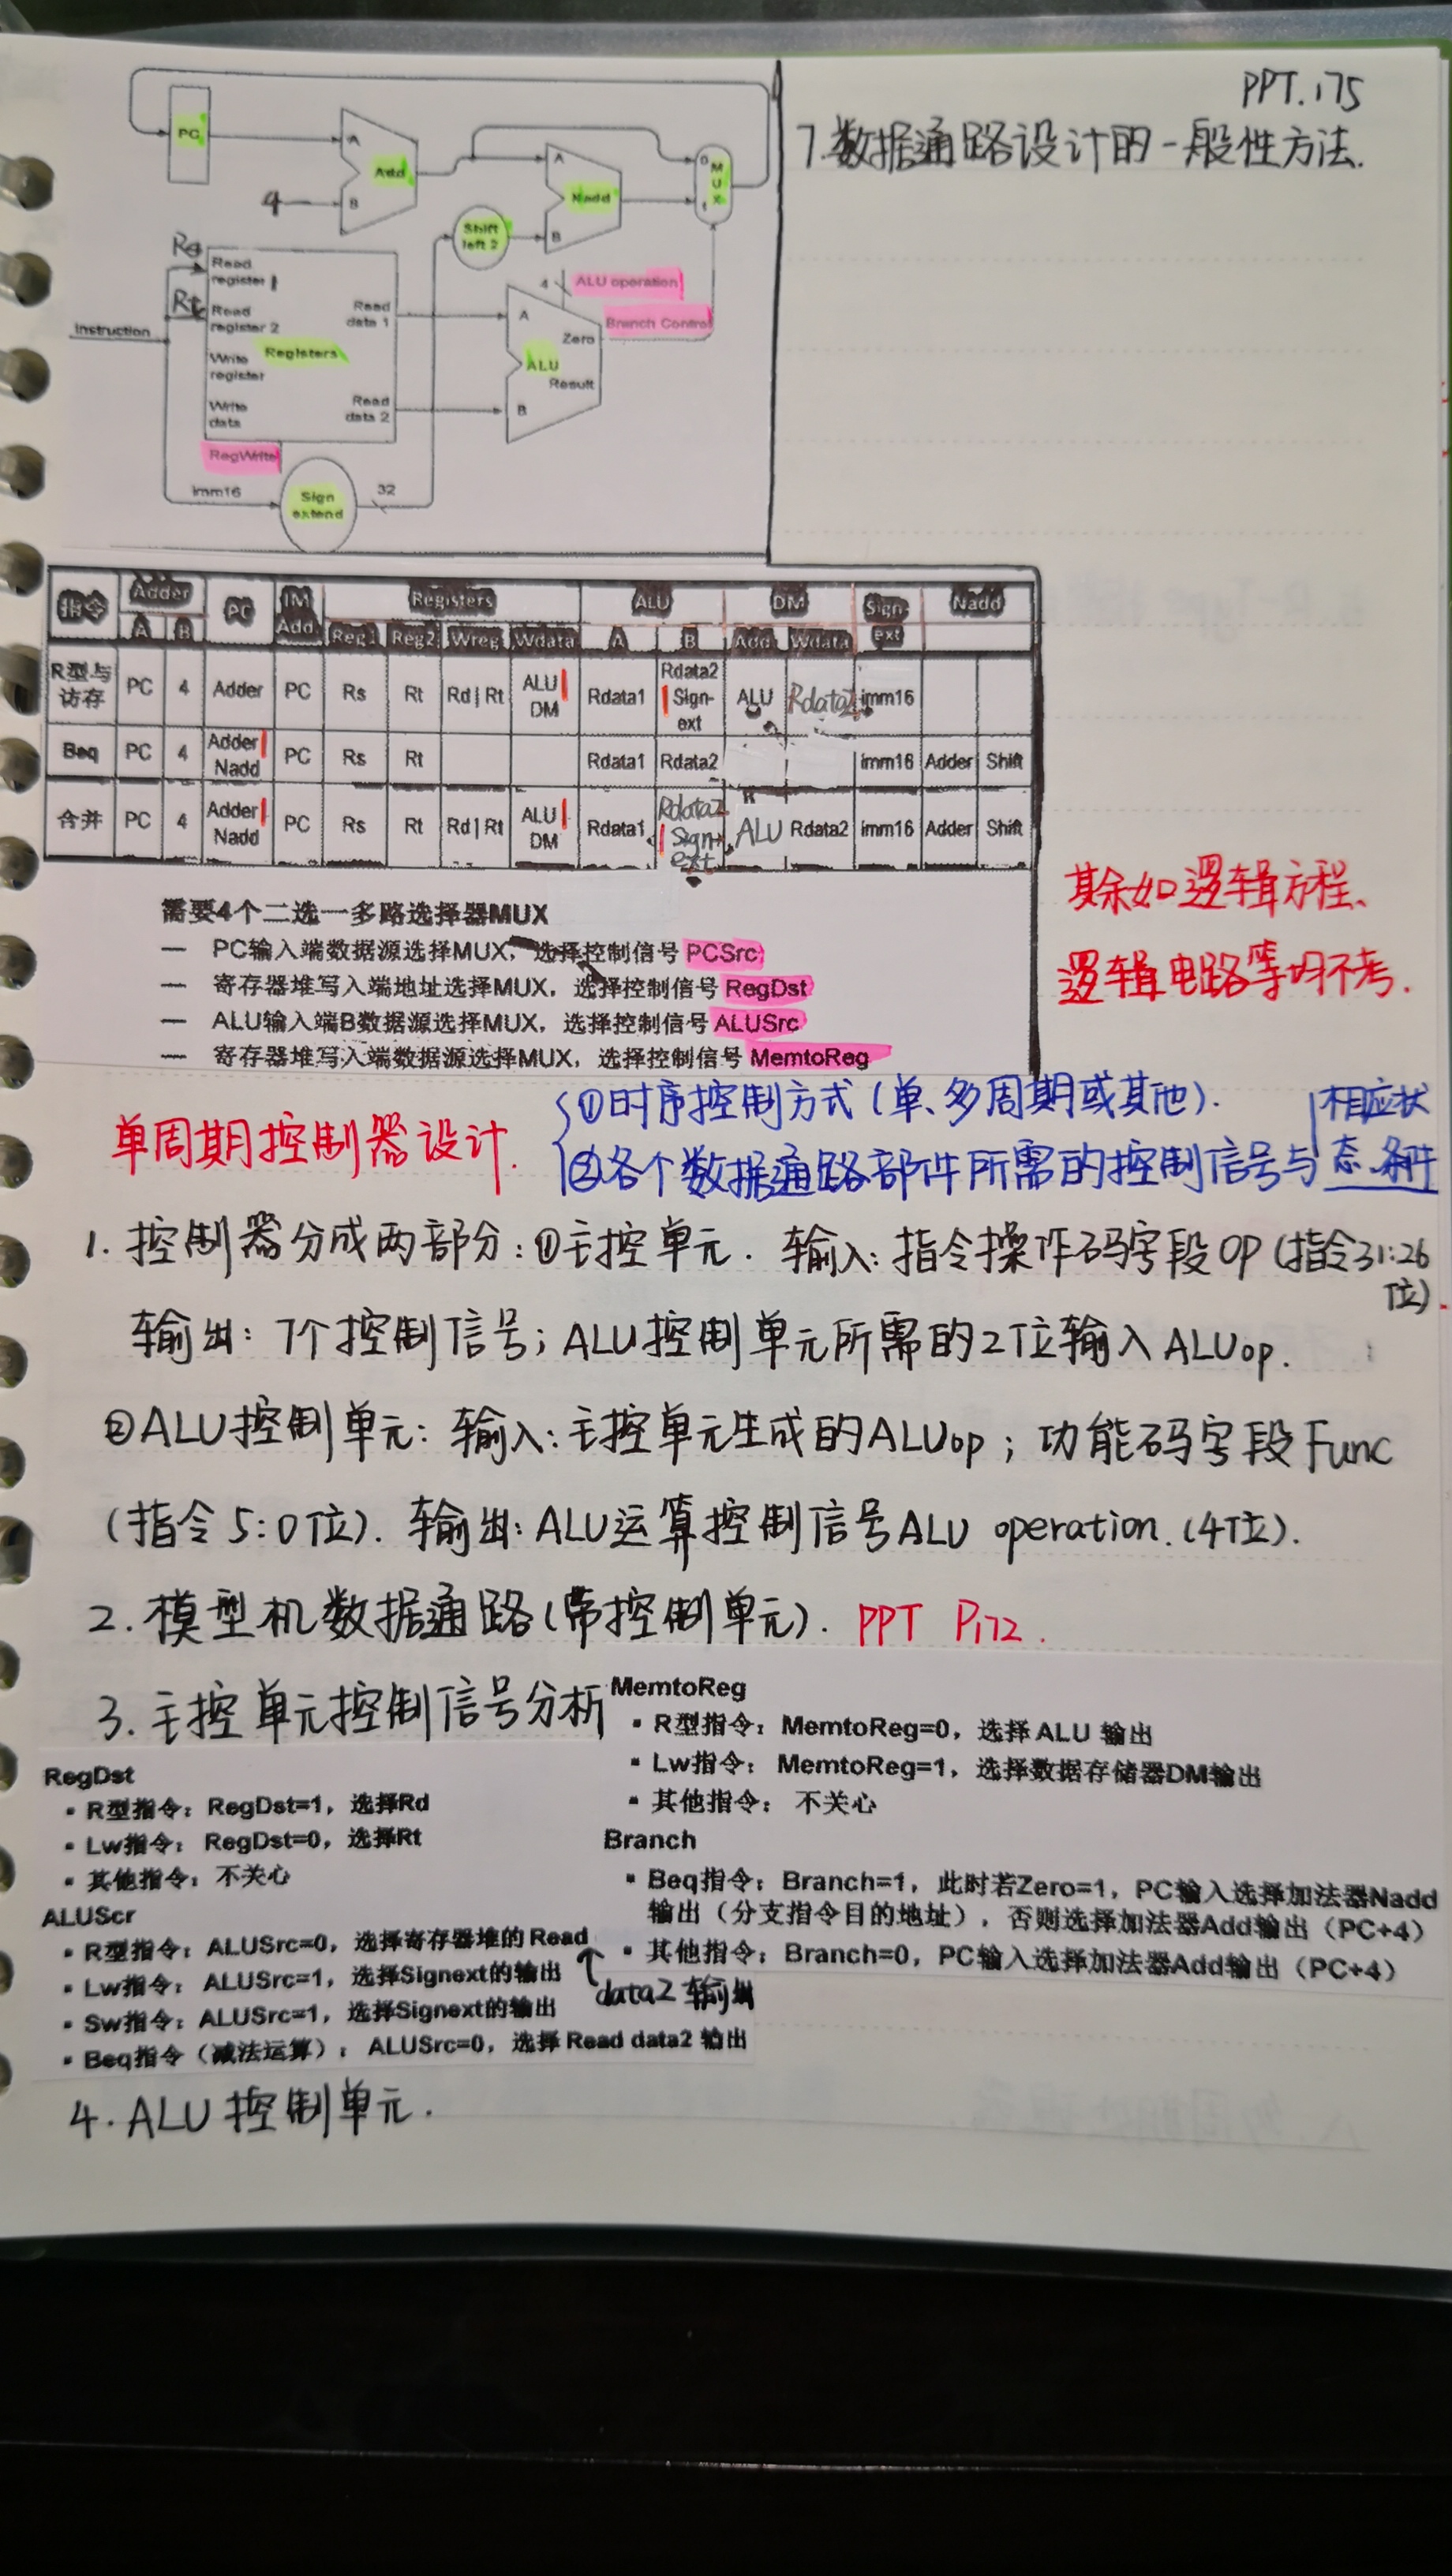 PPT.175
7.数据通路设计的一般性方法.
PC
A
Add
4
B
A
Nadd
B
MUX
Shift left 2
Rs
Read register 1
Rt
Read register 2
Instruction
Write register
Registers
Write data
Read data 1
Read data 2
RegWrite
4
ALU operation
Branch Control
A
Zero
ALU
Result
B
imm16
Sign extend
32
指令 Adder PC IM Registers ALU DM Sign Nadd
A B Add. Reg1 Reg2 Wreg Wdata A B Add. Wdata ext
R型与访存 PC 4 Adder PC Rs Rt Rd|Rt ALU|DM Rdata1 Rdata2|Sign-ext ALU Rdata2 imm16
Beq PC 4 Adder|Nadd PC Rs Rt Rdata1 Rdata2 imm16 Adder Shift
合并 PC 4 Adder|Nadd PC Rs Rt Rd|Rt ALU|DM Rdata1 Rdata2|Sign-ext ALU Rdata2 imm16 Adder Shift
需要4个二选一多路选择器MUX
— PC输入端数据源选择MUX，选择控制信号 PCSrc
— 寄存器堆写入端地址选择MUX，选择控制信号 RegDst
— ALU输入端B数据源选择MUX，选择控制信号 ALUSrc
— 寄存器堆写入端数据源选择MUX，选择控制信号 MemtoReg
其余如逻辑方程、
逻辑电路等均不考.
单周期控制器设计.
①时序控制方式(单、多周期或其他).
②各个数据通路部件所需的控制信号与相应状态、条件
1. 控制器分成两部分:①主控单元. 输入:指令操作码字段OP(指令31:26位).
输出: 7个控制信号; ALU控制单元所需的2位输入ALUop.
②ALU控制单元: 输入:主控单元生成的ALUop; 功能码字段Func
(指令5:0位). 输出:ALU运算控制信号ALU operation.(4位).
2. 模型机数据通路(带控制单元). PPT P172.
3. 主控单元控制信号分析
MemtoReg
▪ R型指令：MemtoReg=0，选择ALU 输出
▪ Lw指令： MemtoReg=1，选择数据存储器DM输出
▪ 其他指令： 不关心
RegDst
▪ R型指令：RegDst=1，选择Rd
▪ Lw指令： RegDst=0，选择Rt
▪ 其他指令：不关心
Branch
▪ Beq指令：Branch=1，此时若Zero=1，PC输入选择加法器Nadd
输出（分支指令目的地址），否则选择加法器Add输出（PC+4）
▪ 其他指令：Branch=0，PC输入选择加法器Add输出（PC+4）
ALUScr
▪ R型指令：ALUSrc=0，选择寄存器堆的 Read
data2 输出
▪ Lw指令：ALUSrc=1，选择Signext的输出
▪ Sw指令：ALUSrc=1，选择Signext的输出
▪ Beq指令（减法运算）：ALUSrc=0，选择 Read data2 输出
4. ALU控制单元.